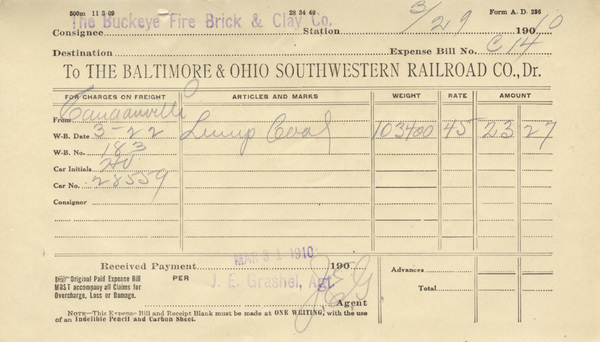 500m 11 3 09 28 34 49 Form A. D. 236
The Buckeye Fire Brick & Clay Co.
Consignee Station 3/29 190 10
Destination Expense Bill No. C 14
To THE BALTIMORE & OHIO SOUTHWESTERN RAILROAD CO., Dr.
FOR CHARGES ON FREIGHT ARTICLES AND MARKS WEIGHT RATE AMOUNT
From
W-B. Date 3-22 Lump Coal 103400 45 23 27
W-B. No. 183
Car Initials
Car No. 28559
Consignor
MAR 31 1910
Received Payment 190
Original Paid Expense Bill PER J. E. Grashel, Agt. Advances
MUST accompany all Claims for JEG Total
Overcharge, Loss or Damage. Agent
NOTE—This Expense Bill and Receipt Blank must be made at ONE WRITING, with the use
of an Indelible Pencil and Carbon Sheet.